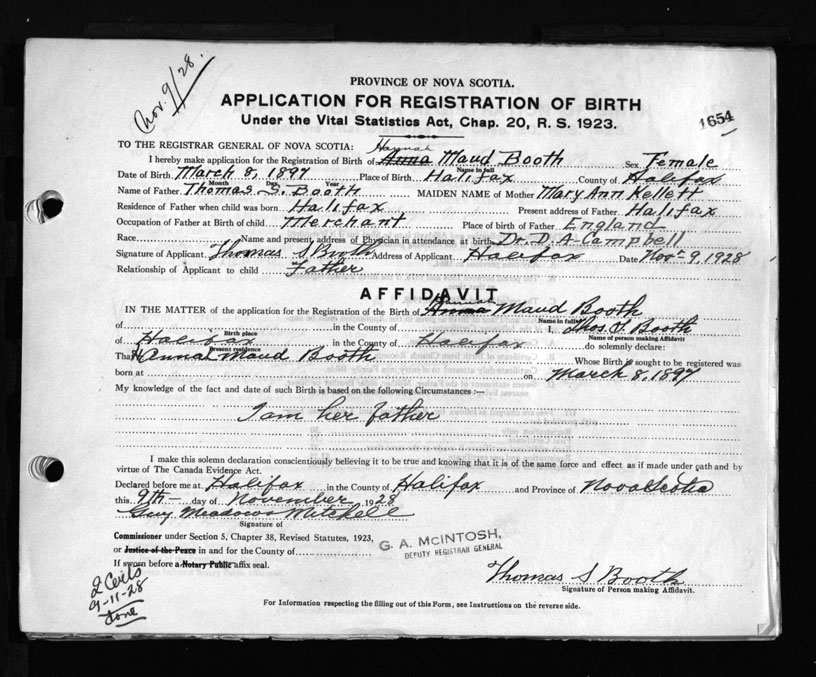 Nov. 9/28.
PROVINCE OF NOVA SCOTIA.
APPLICATION FOR REGISTRATION OF BIRTH
Under the Vital Statistics Act, Chap. 20, R. S. 1923.
1654
TO THE REGISTRAR GENERAL OF NOVA SCOTIA:
Hannah
I hereby make application for the Registration of Birth of Anna Maud Booth Sex Female
Name in full
Date of Birth March 8, 1897 Place of Birth Halifax County of Halifax
Month Day Year
Name of Father Thomas S. Booth MAIDEN NAME of Mother Mary Ann Kellett
Residence of Father when child was born Halifax Present address of Father Halifax
Occupation of Father at Birth of child Merchant Place of birth of Father England
Race Name and present address of Physician in attendance at birth Dr. D. A. Campbell
Signature of Applicant Thomas S Booth Address of Applicant Halifax Date Nov 9, 1928
Relationship of Applicant to child Father
AFFIDAVIT
Hannah
IN THE MATTER of the application for the Registration of the Birth of Anna Maud Booth
Name in full
of in the County of I, Thos. S. Booth
Birth place Name of person making Affidavit
of Halifax in the County of Halifax do solemnly declare:
Present residence
That Hannah Maud Booth Whose Birth is sought to be registered was
born at on March 8, 1897
My knowledge of the fact and date of such Birth is based on the following Circumstances :—
I am her father
I make this solemn declaration conscientiously believing it to be true and knowing that it is of the same force and effect as if made under oath and by
virtue of The Canada Evidence Act.
Declared before me at Halifax in the County of Halifax and Province of Nova Scotia
this 9th day of November 1928
Guy Meadows Mitchell
Signature of
Commissioner under Section 5, Chapter 38, Revised Statutes, 1923,
or Justice of the Peace in and for the County of
G. A. McINTOSH,
DEPUTY REGISTRAR GENERAL
If sworn before a Notary Public affix seal.
Thomas S Booth
Signature of Person making Affidavit.
2 Certs
9-11-28
done
For Information respecting the filling out of this Form, see Instructions on the reverse side.